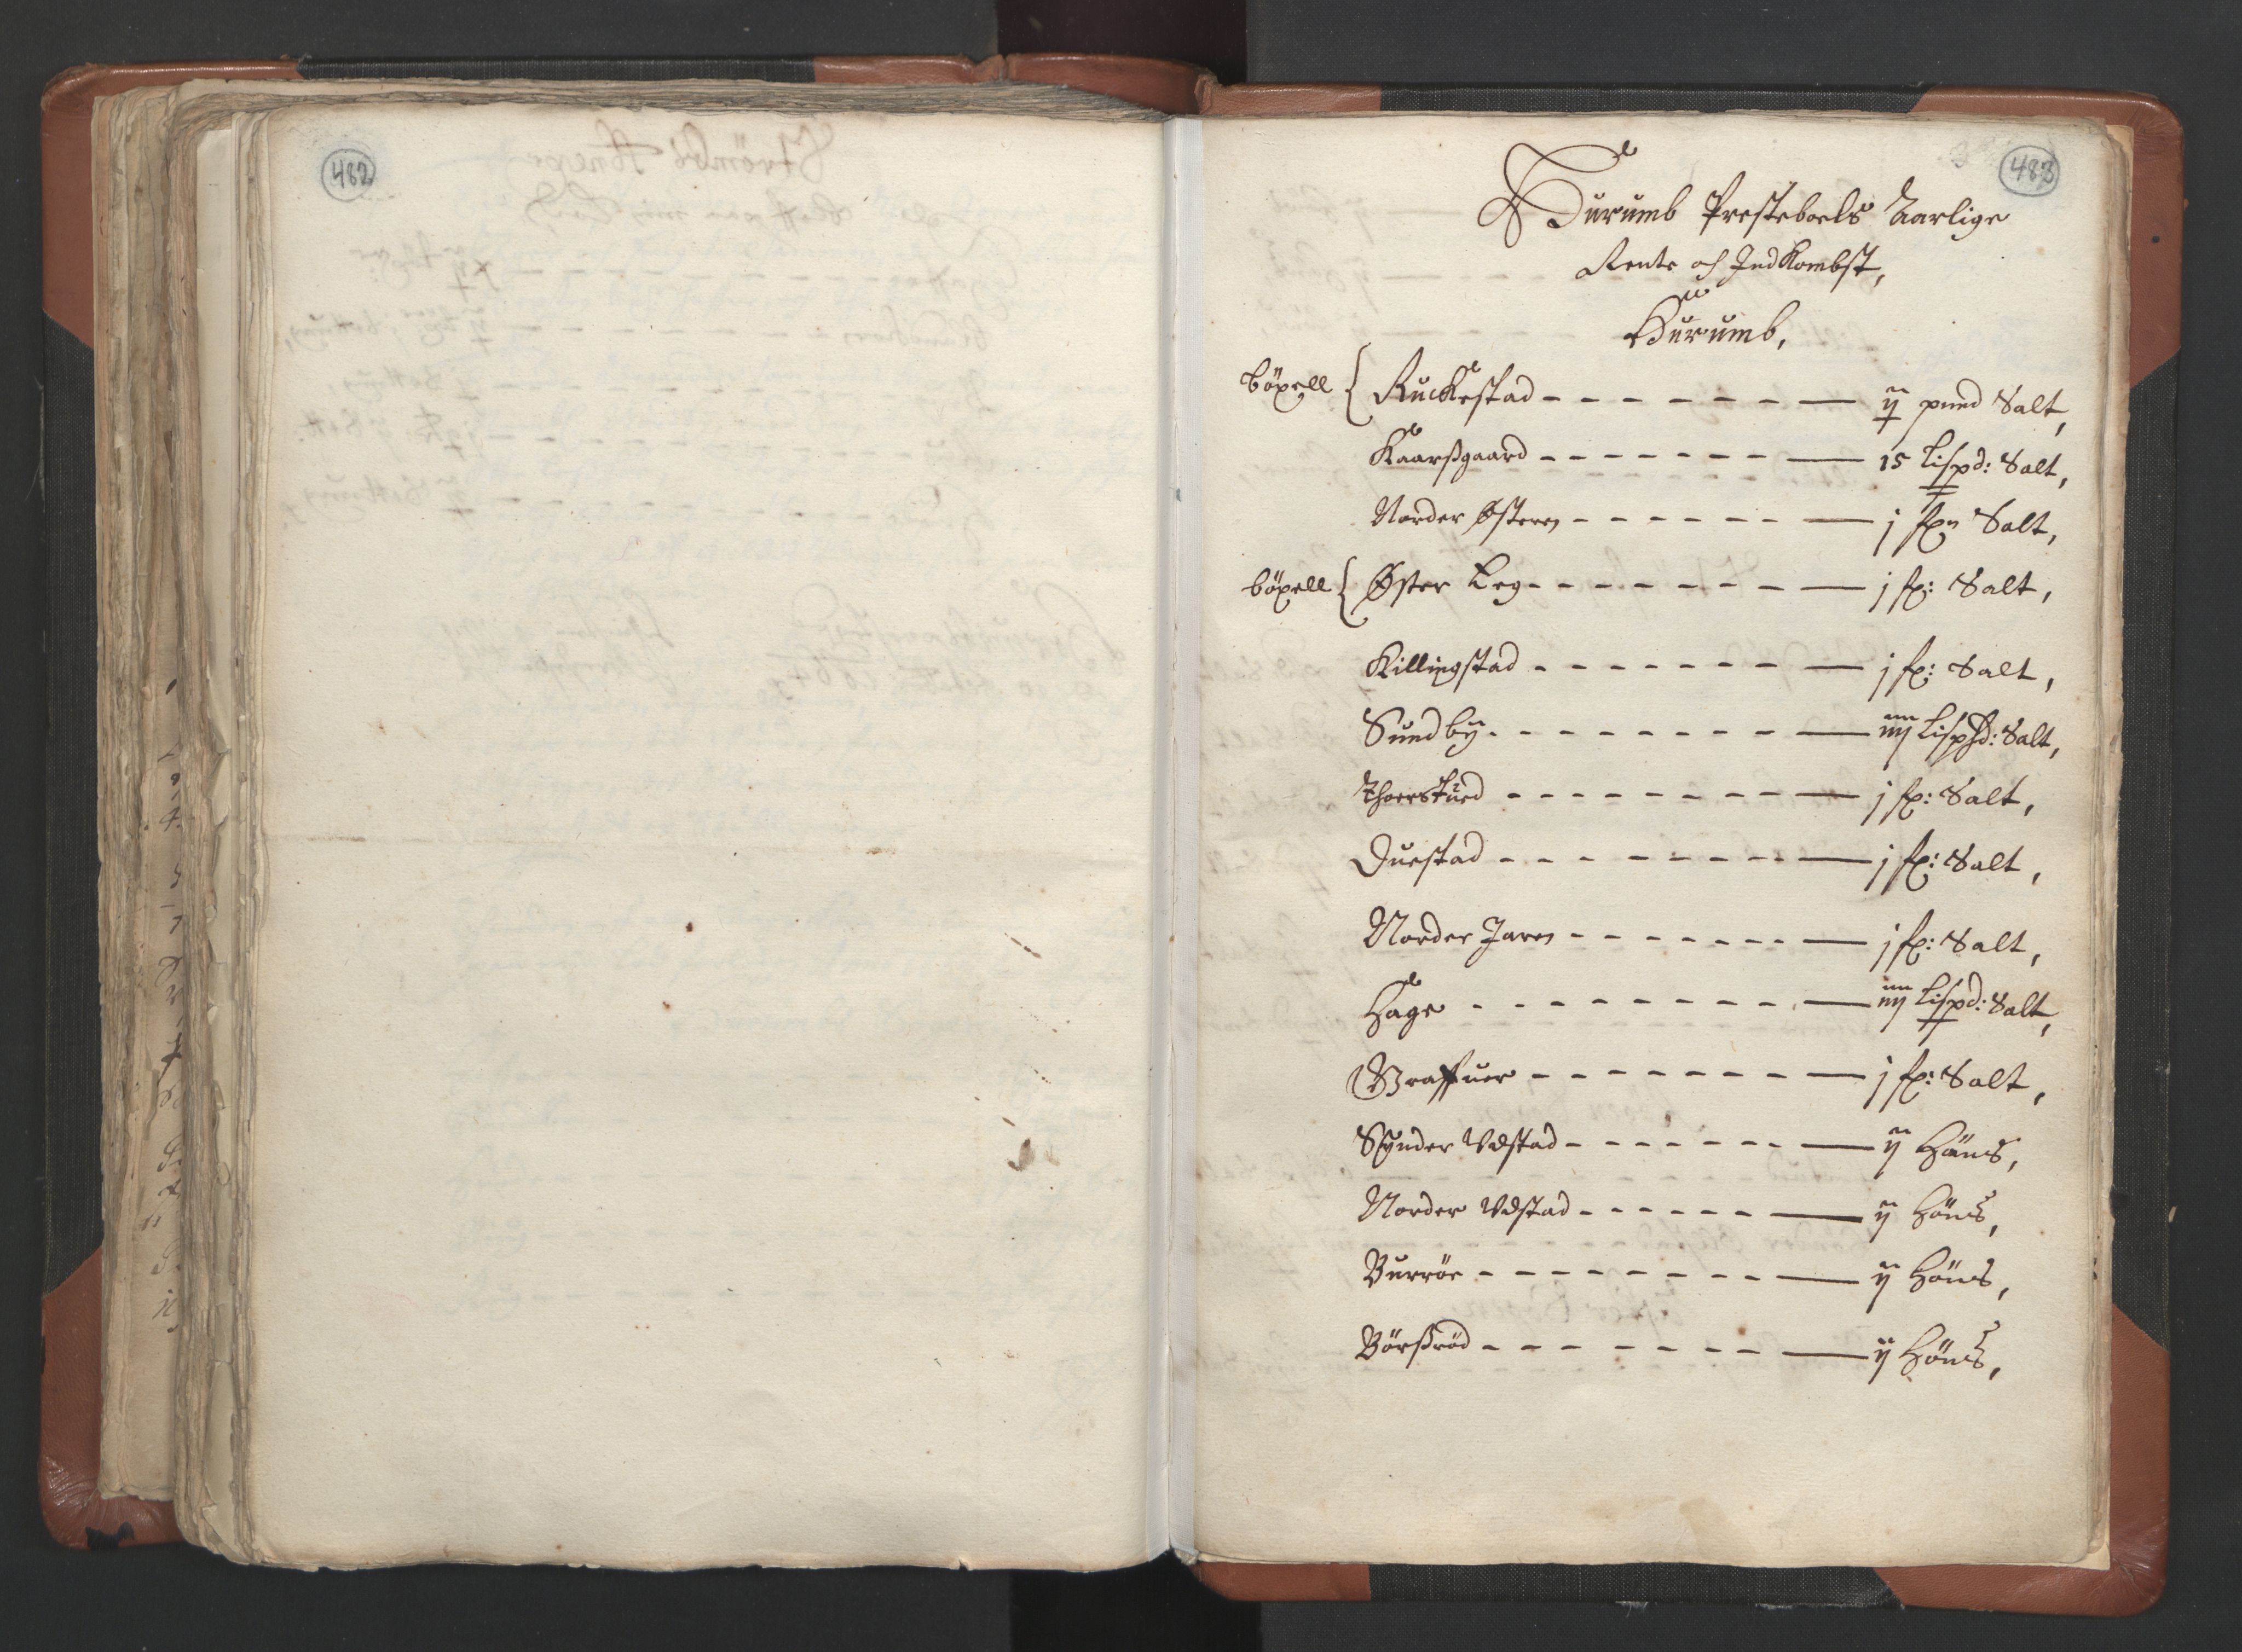 482
483
Hurumb Presteboels Aarlige
Rente och Indkombst,
Hurumb,
böxell { Ruckestad - - - - - - - — ij pund Salt,
Kaarßgaard - - - - - - - — 15 Lispd: Salt,
Norder Østeren - - - - - - — j sk: Salt,
böxell { Øster Leg - - - - - - - — j sk: Salt,
Killingstad - - - - - - - — j sk: Salt,
Sundby - - - - - - - - — iiij Lispd: Salt,
Thorstued - - - - - - - - - — j sk: Salt,
Duestad - - - - - - - - — j sk: Salt,
Norder Jaren - - - - - - - — j sk: Salt,
Hage - - - - - - - - - — iiij Lispd: Salt,
Graffuer - - - - - - - — j sk: Salt,
Synder Vdstad - - - - - - — ij Höns,
Norder Vdstad - - - - - - — ij Höns,
Burröe - - - - - - - - — ij Höns,
Börßröd - - - - - - - - — ij Höns,